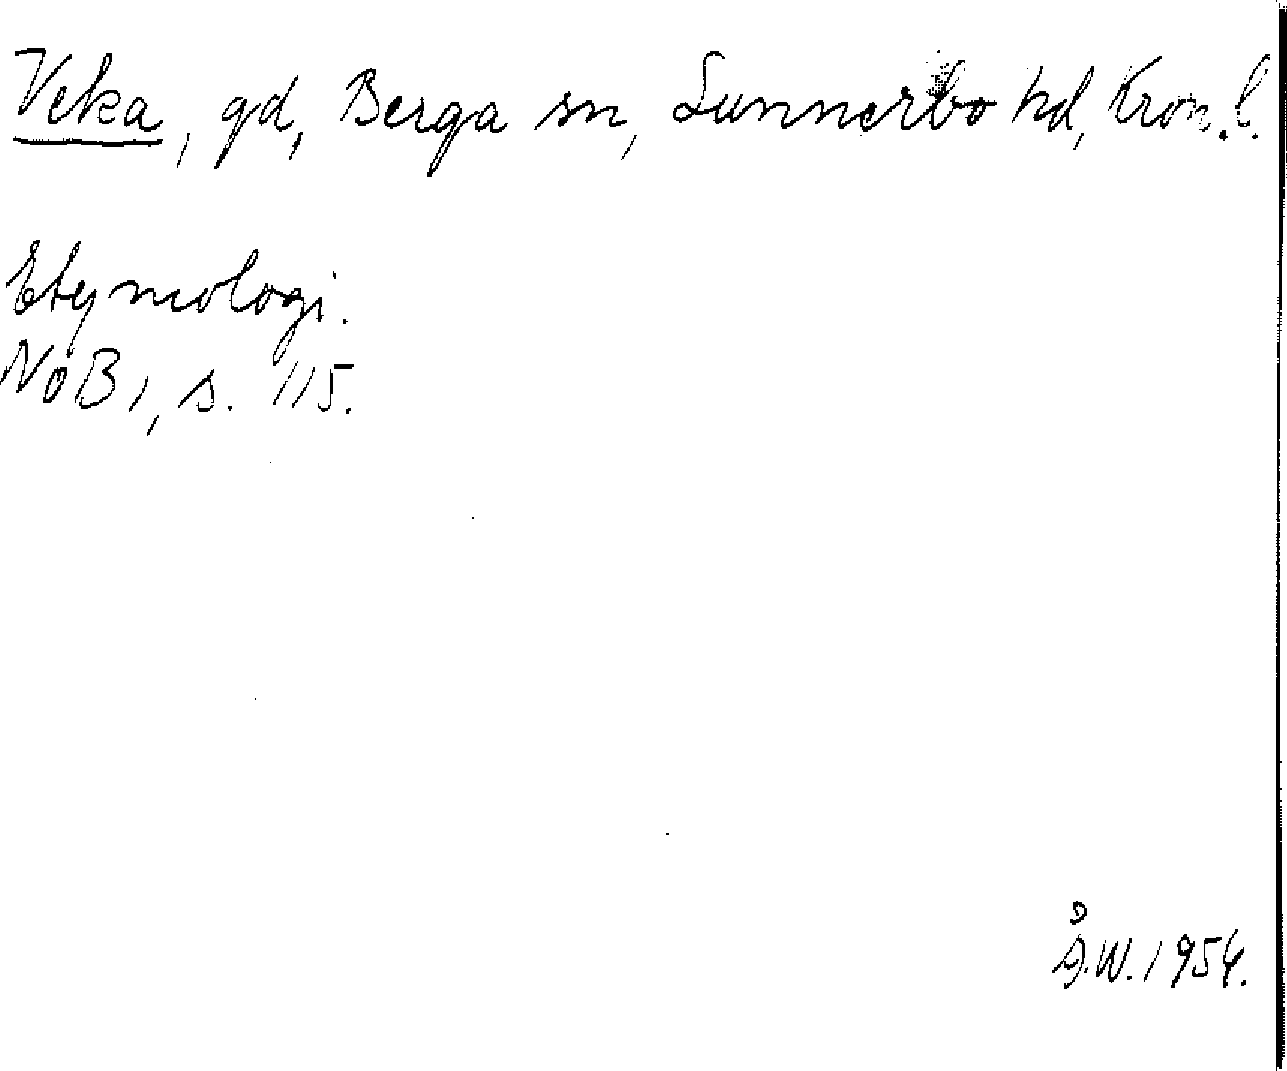 Veka, gd, Berga sn, Sunnerbo hd, Kron. l.
Etymologi.
NoB 1, s. 115.
Å.W. 1954.